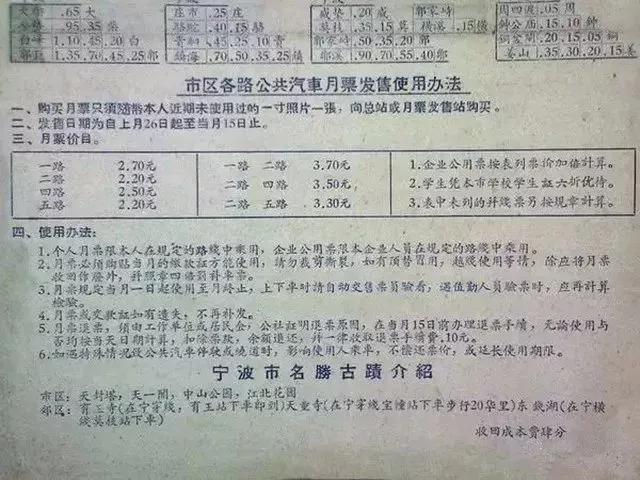 .65大
.95.35柴
白峰 1.10.45.20白
1.35.70.45.25郭
庄市.25庄
骆駝.40.15骆
.45.25.10青
镇海.70.50.35.25镇
盛垫.20盛
莫枝.35.15莫
郭家峙.50.35.20郭
.90.70.55.40郭
郭家峙
横溪.15横
周四渡.05周
钟公庙.15.10钟
铜盆閘.20.15.05铜
姜山.35.30.20.15姜
市区各路公共汽車月票发售使用办法
一、购买月票只須随带本人近期未使用过的一寸照片一張，向总站或月票发售站购买。
二、发售日期为自上月26日起至当月15日止。
三、月票价目。
一路 2.70元 一路 二路 3.70元 1.企业公用票按表列票价加倍計算。
二路 2.20元
四路 2.50元 二路 四路 3.50元 2.学生凭本市学校学生証六折优待。
五路 2.20元 二路 五路 3.30元 3.表中未列的幷綫票另按規章計算。
四、使用办法：
1.个人月票限本人在規定的路綫中乘用，企业公用票限本企业人員在規定的路綫中乘用。
2.月票必須购貼当月的缴款証方能使用，請勿裁剪撕裂，如有頂替冒用，越綫使用等情，除应将月票
收回作廢外，幷照章四倍罰补車票。
3.月票規定当月一日起使用至月終止，上下車时請自动交售票員驗看，遇值勤人員驗票时，应再計算
檢驗。
4.月票或交款証如有遺失，不再补发。
5.月票退票，須由工作单位或居民会，公社証明退票原因，在当月15日前办理退票手續，无論使用与
否均按当天日期計算，扣除票款，余額退还，幷一律收取退票手續費.10元。
6.如遇特殊情况致公共汽車停駛或繞道时，影响使用人乘車，不偿还票价，或延长使用期限。
宁波市名勝古蹟介紹
市区：天封塔，天一閣，中山公园，江北花园
郊区：育王寺(在宁穿綫，育王站下車即到)天童寺(在宁穿綫宝幢站下車步行20华里)东錢湖(在宁横
綫莫枝站下車)
收回成本費肆分